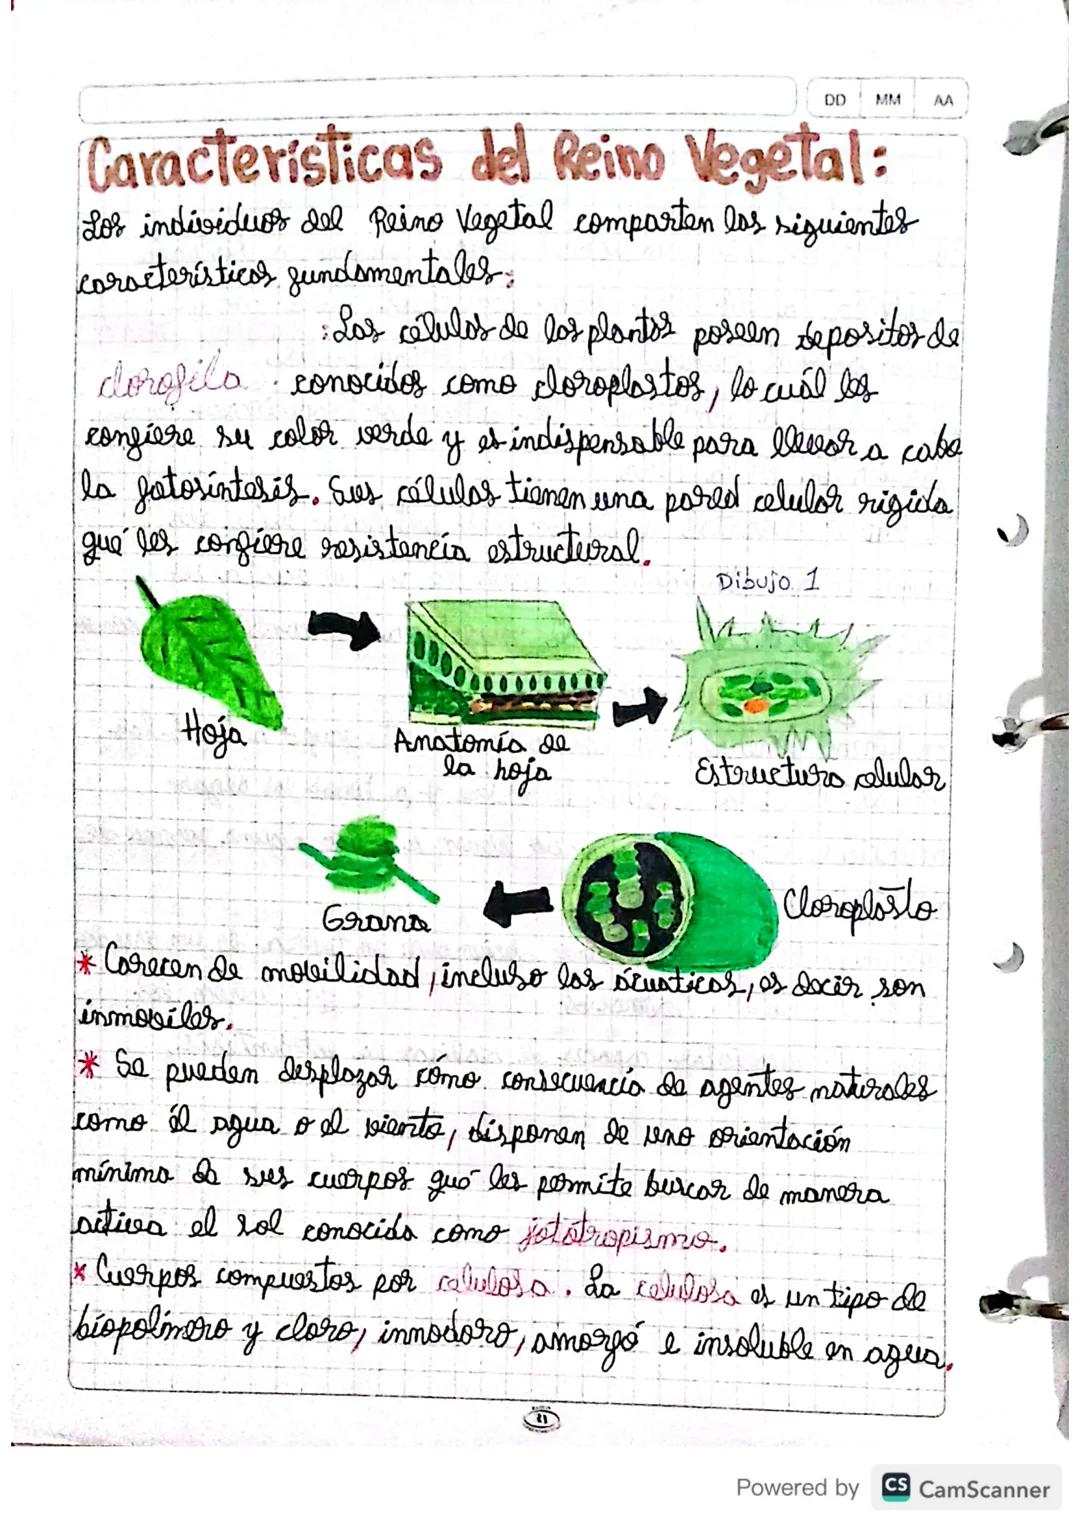 DD MM AA
Características del Reino Vegetal:
Los individuos del Reino Vegetal comparten las siguientes
características fundamentales:
:Las células de las plantas poseen depositos de
clorofila. conocidos como cloroplastos, lo cuál les
confiere su color verde y es indispensable para llevar a cabo
la fotosíntesis. Sus células tienen una pared celular rigida
qué les confiere resistencia estructural.
Dibujo 1
Hoja
Anatomía de
la hoja
Estructura celular
Grana
Cloroplasto
* Carecen de movilidad, incluso las ácuaticas, es decir son
inmoviles.
* Se pueden desplazar cómo consecuencía de agentes naturales
como él agua o el viento, disponen de una orientación
mínima de sus cuerpos qué les permite buscar de manera
activa el sol conocida como fototropismo.
* Cuerpos compuestos por celulosa. La celulosa es un tipo de
biopolímero y claro, innodoro, amorfó e insoluble en agua.
Powered by CS CamScanner